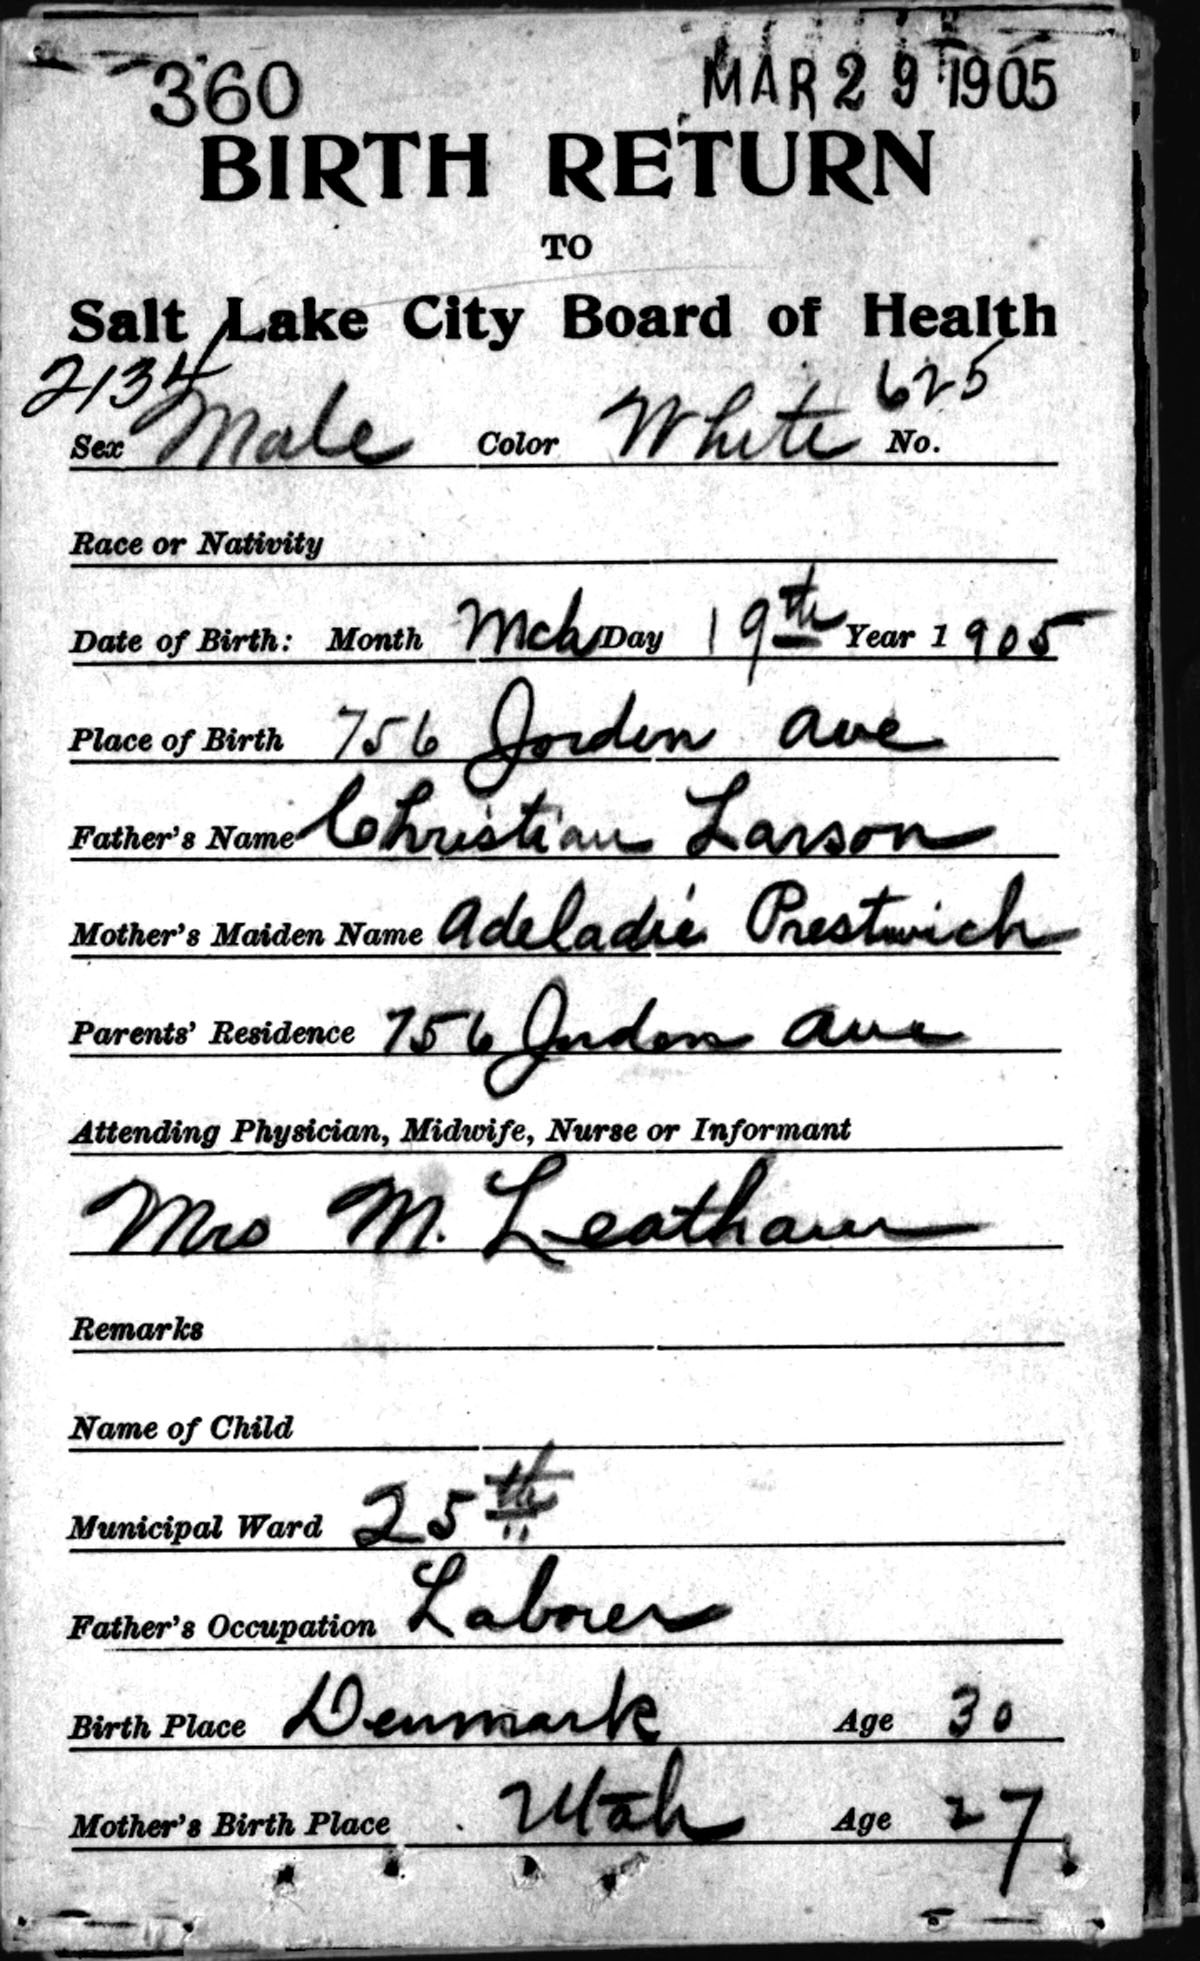 360 MAR 29 1905
BIRTH RETURN
TO
Salt Lake City Board of Health
2134 625
Sex Male Color White No.
Race or Nativity
Date of Birth: Month Mch Day 19th Year 1905
Place of Birth 756 Jorden ave
Father's Name Christian Larson
Mother's Maiden Name Adeladie Prestwich
Parents' Residence 756 Jorden ave
Attending Physician, Midwife, Nurse or Informant
Mrs M. Leatham
Remarks
Name of Child
Municipal Ward 25th
Father's Occupation Laborer
Birth Place Denmark Age 30
Mother's Birth Place Utah Age 27